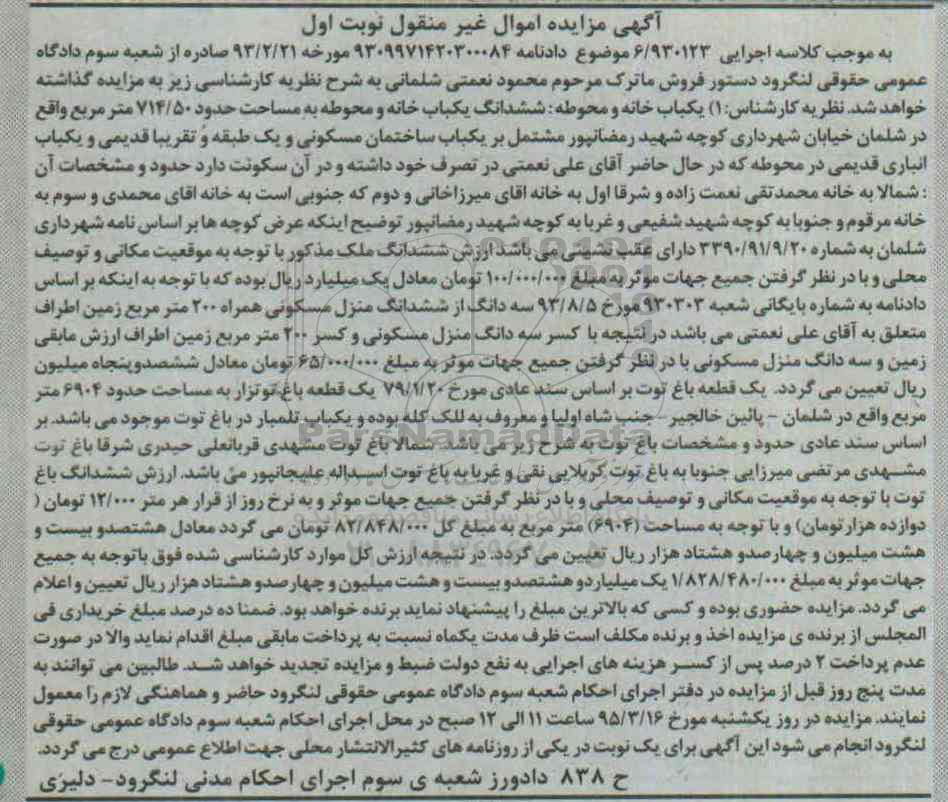 آگهی مزایده اموال غیر منقول نوبت اول
به موجب کلاسه اجرایی ۶/۹۳۰۱۲۳ موضوع دادنامه ۹۳۰۹۹۷۱۴۲۰۳۰۰۰۸۴ مورخه ۹۳/۲/۲۱ صادره از شعبه سوم دادگاه
عمومی حقوقی لنگرود دستور فروش ماترک مرحوم محمود نعمتی شلمانی به شرح نظریه کارشناسی زیر به مزایده گذاشته
خواهد شد. نظریه کارشناس: ۱) یکباب خانه و محوطه: ششدانگ یکباب خانه و محوطه به مساحت حدود ۷۱۴/۵۰ متر مربع واقع
در شلمان خیابان شهرداری کوچه شهید رمضانپور مشتمل بر یکباب ساختمان مسکونی و یک طبقه و تقریبا قدیمی و یکباب
انباری قدیمی در محوطه که در حال حاضر آقای علی نعمتی در تصرف خود داشته و در آن سکونت دارد حدود و مشخصات آن
: شمالا به خانه محمدتقی نعمت زاده و شرقا اول به خانه اقای میرزاخانی و دوم که جنوبی است به خانه اقای محمدی و سوم به
خانه مرقوم و جنوبا به کوچه شهید شفیعی و غربا به کوچه شهید رمضانپور توضیح اینکه عرض کوچه ها بر اساس نامه شهرداری
شلمان به شماره ۳۳۹۰/۹۱/۹/۲۰ دارای عقب نشینی می باشد ارزش ششدانگ ملک مذکور با توجه به موقعیت مکانی و توصیف
محلی و با در نظر گرفتن جمیع جهات موثر به مبلغ ۱۰۰/۰۰۰/۰۰۰ تومان معادل یک میلیارد ریال بوده که با توجه به اینکه بر اساس
دادنامه به شماره بایگانی شعبه ۹۳۰۳۰۳ مورخ ۹۳/۸/۵ سه دانگ از ششدانگ منزل مسکونی همراه ۲۰۰ متر مربع زمین اطراف
متعلق به آقای علی نعمتی می باشد در نتیجه با کسر سه دانگ منزل مسکونی و کسر ۲۰۰ متر مربع زمین اطراف ارزش مابقی
زمین و سه دانگ منزل مسکونی با در نظر گرفتن جمیع جهات موثر به مبلغ ۶۵/۰۰۰/۰۰۰ تومان معادل ششصدوپنجاه میلیون
ریال تعیین می گردد. یک قطعه باغ توت بر اساس سند عادی مورخ ۷۹/۱/۲۰ یک قطعه باغ توتزار به مساحت حدود ۶۹۰۴ متر
مربع واقع در شلمان - پائین خالجیر - جنب شاه اولیا و معروف به للک کله بوده و یکباب تلمبار در باغ توت موجود می باشد. بر
اساس سند عادی حدود و مشخصات باغ توت به شرح زیر می باشد. شمالا باغ توت مشهدی قربانعلی حیدری شرقا باغ توت
مشهدی مرتضی میرزایی جنوبا به باغ توت کربلایی نقی و غربا به باغ توت اسداله علیجانپور می باشد. ارزش ششدانگ باغ
توت با توجه به موقعیت مکانی و توصیف محلی و با در نظر گرفتن جمیع جهات موثر و به نرخ روز از قرار هر متر ۱۲/۰۰۰ تومان (
دوازده هزار تومان) و با توجه به مساحت (۶۹۰۴) متر مربع به مبلغ کل ۸۲/۸۴۸/۰۰۰ تومان می گردد معادل هشتصدو بیست و
هشت میلیون و چهارصدو هشتاد هزار ریال تعیین می گردد. در نتیجه ارزش کل موارد کارشناسی شده فوق باتوجه به جمیع
جهات موثر به مبلغ ۱/۸۲۸/۴۸۰/۰۰۰ یک میلیاردو هشتصدو بیست و هشت میلیون و چهارصدو هشتاد هزار ریال تعیین و اعلام
می گردد. مزایده حضوری بوده و کسی که بالاترین مبلغ را پیشنهاد نماید برنده خواهد بود. ضمنا ده درصد مبلغ خریداری فی
المجلس از برنده ی مزایده اخذ و برنده مکلف است ظرف مدت یکماه نسبت به پرداخت مابقی مبلغ اقدام نماید والا در صورت
عدم پرداخت ۲ درصد پس از کسر هزینه های اجرایی به نفع دولت ضبط و مزایده تجدید خواهد شد. طالبین می توانند به
مدت پنج روز قبل از مزایده در دفتر اجرای احکام شعبه سوم دادگاه عمومی حقوقی لنگرود حاضر و هماهنگی لازم را معمول
نمایند. مزایده در روز یکشنبه مورخ ۹۵/۳/۱۶ ساعت ۱۱ الی ۱۲ صبح در محل اجرای احکام شعبه سوم دادگاه عمومی حقوقی
لنگرود انجام می شود این آگهی برای یک نوبت در یکی از روزنامه های کثیرالانتشار محلی جهت اطلاع عمومی درج می گردد.
ح ۸۳۸ دادورز شعبه ی سوم اجرای احکام مدنی لنگرود- دلیری